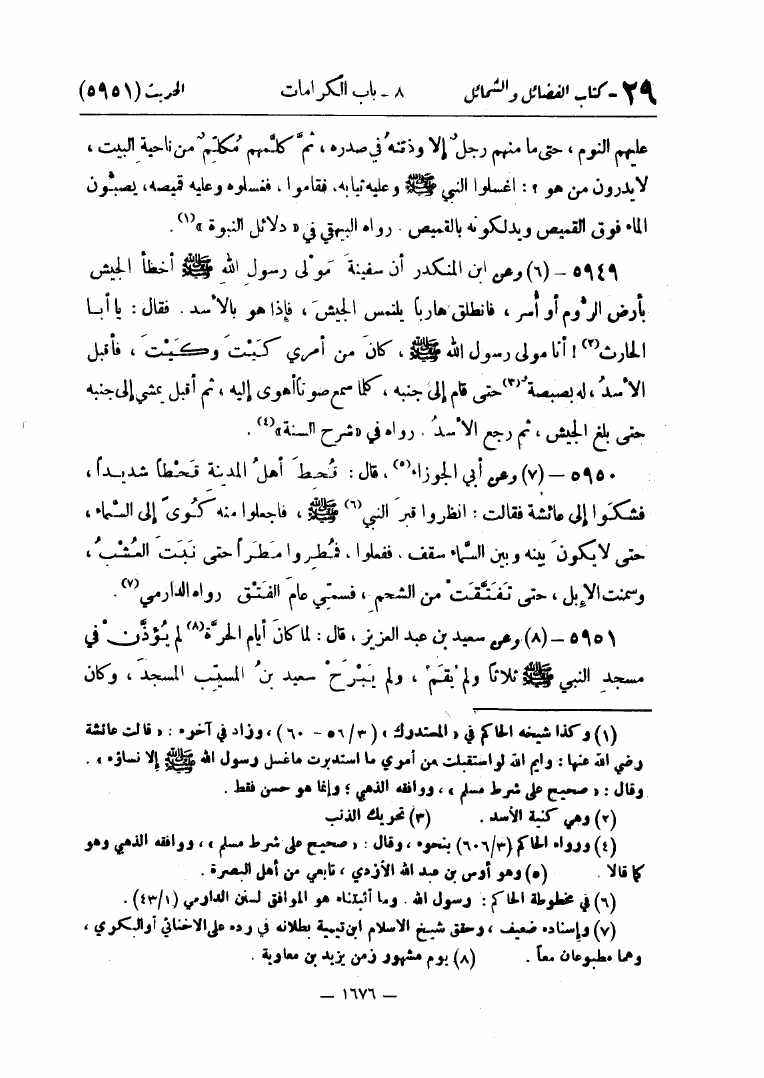 ٢٩ - كتاب الفضائل والشمائل ٨ - باب الكرامات الحديث (٥٩٥١)
عليهم النوم ، حتى ما منهم رجلٌ إلا وذقنه في صدره ، ثمَّ كلَّمهم مُكلِّمٌ من ناحية البيت ،
لا يدرون من هو ؟ : اغسلوا النبي ﷺ وعليه ثيابه، فقاموا ، فغسلوه وعليه قميصه، يصبُّون
الماء فوق القميص ويدلكونه بالقميص . رواه البيهقي في « دلائل النبوة »(١).
٥٩٤٩ - (٦) وعن ابن المنكدر أن سفينةَ مَوْلى رسولِ اللهِ ﷺ أخطأ الجيش
بأرض الرُّوم أو أُسر ، فانطلق هارباً يلتمس الجيشَ ، فإذا هو بالأسد . فقال : يا أبا
الحارث(٢) ! أنا مولى رسول الله ﷺ ، كانَ من أمري كَيْتَ وكَيْتَ ، فأقبل
الأسدُ ، له بصبصةٌ(٣) حتى قام إلى جنبه ، كلما سمع صوتاً أهوى إليه ، ثم أقبل يمشي إلى جنبه
حتى بلغ الجيش ، ثم رجع الأسدُ . رواه في «شرح السنة»(٤) .
٥٩٥٠ - (٧) وعن أبي الجوزاء(٥) ، قال : قُحِطَ أهلُ المدينةِ قَحْطاً شديداً ،
فشكَوا إلى عائشة فقالت : انظروا قبرَ النبي(٦) ﷺ ، فاجعلوا منه كُوىً إلى السَّماء ،
حتى لا يكونَ بينه وبين السَّماء سقف . ففعلوا ، فمُطِروا مَطَراً حتى نَبَتَ العُشْبُ ،
وسمنت الإبل ، حتى تَفَتَّقَتْ من الشحم ، فسمّي عامَ الفَتْقِ رواه الدارمي(٧) .
٥٩٥١ - (٨) وعن سعيد بن عبد العزيز ، قال : لما كانَ أيام الحرَّة(٨) لم يُؤَذَّنْ في
مسجد النبي ﷺ ثلاثاً ولم يُقَمْ ، ولم يَبْرَحْ سعيد بنُ المسيّب المسجدَ ، وكان
(١) وكذا شيخه الحاكم في « المستدرك » (٣/ ٥٦ - ٦٠) ، وزاد في آخره : « قالت عائشة
رضي الله عنها : وايم الله لو استقبلت من أمري ما استدبرت ما غسل رسول الله ﷺ إلا نساؤه » .
وقال : « صحيح على شرط مسلم » ، ووافقه الذهبي ؛ وإنما هو حسن فقط .
(٢) وهي كنية الأسد . (٣) تحريك الذنب
(٤) ورواه الحاكم (٣/ ٦٠٦) بنحوه ، وقال : « صحيح على شرط مسلم » ، ووافقه الذهبي وهو
كما قالا . (٥) وهو أوس بن عبد الله الأزدي ، تابعي من أهل البصرة .
(٦) في مخطوطة الحاكم : رسول الله . وما أثبتناه هو الموافق لسنن الدارمي (١/ ٤٣) .
(٧) وإسناده ضعيف ، وحقق شيخ الاسلام ابن تيمية بطلانه في رده على الاخنائي أو البكري ،
وهما مطبوعان معاً . (٨) يوم مشهور زمن يزيد بن معاوية .
— ١٦٧٦ —